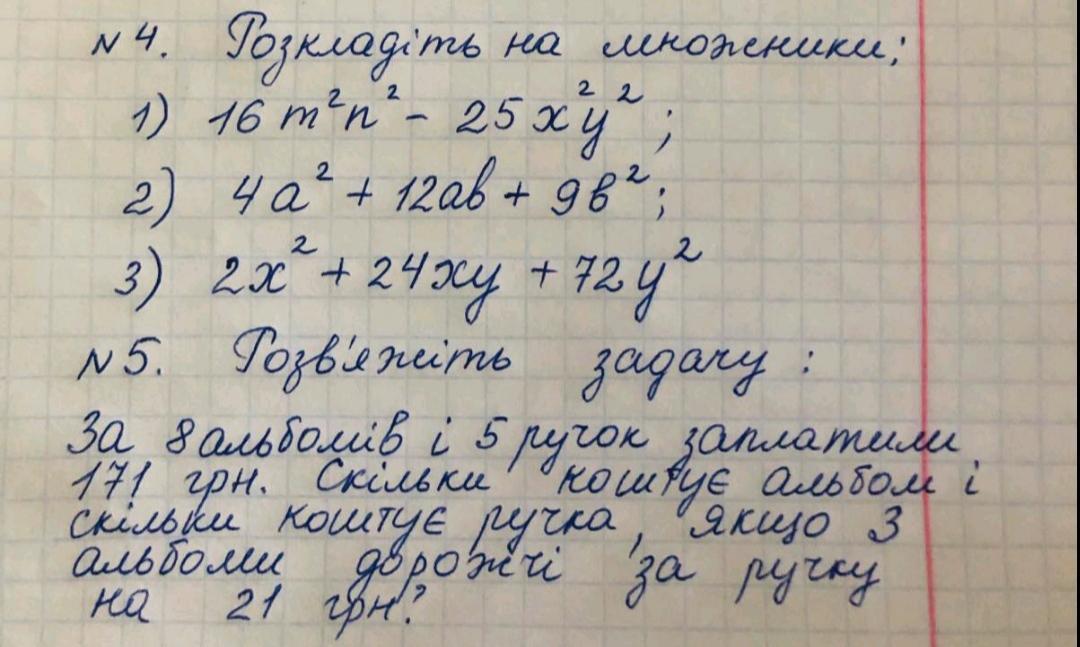 №4. Розкладіть на множники:
1) 16 m²n² - 25 x²y²;
2) 4a² + 12ab + 9b²;
3) 2x² + 24xy + 72y²
№5. Розв'яжіть задачу:
За 8 альбомів і 5 ручок заплатили
171 грн. Скільки коштує альбом і
скільки коштує ручка, якщо 3
альбоми дорожчі за ручку
на 21 грн?